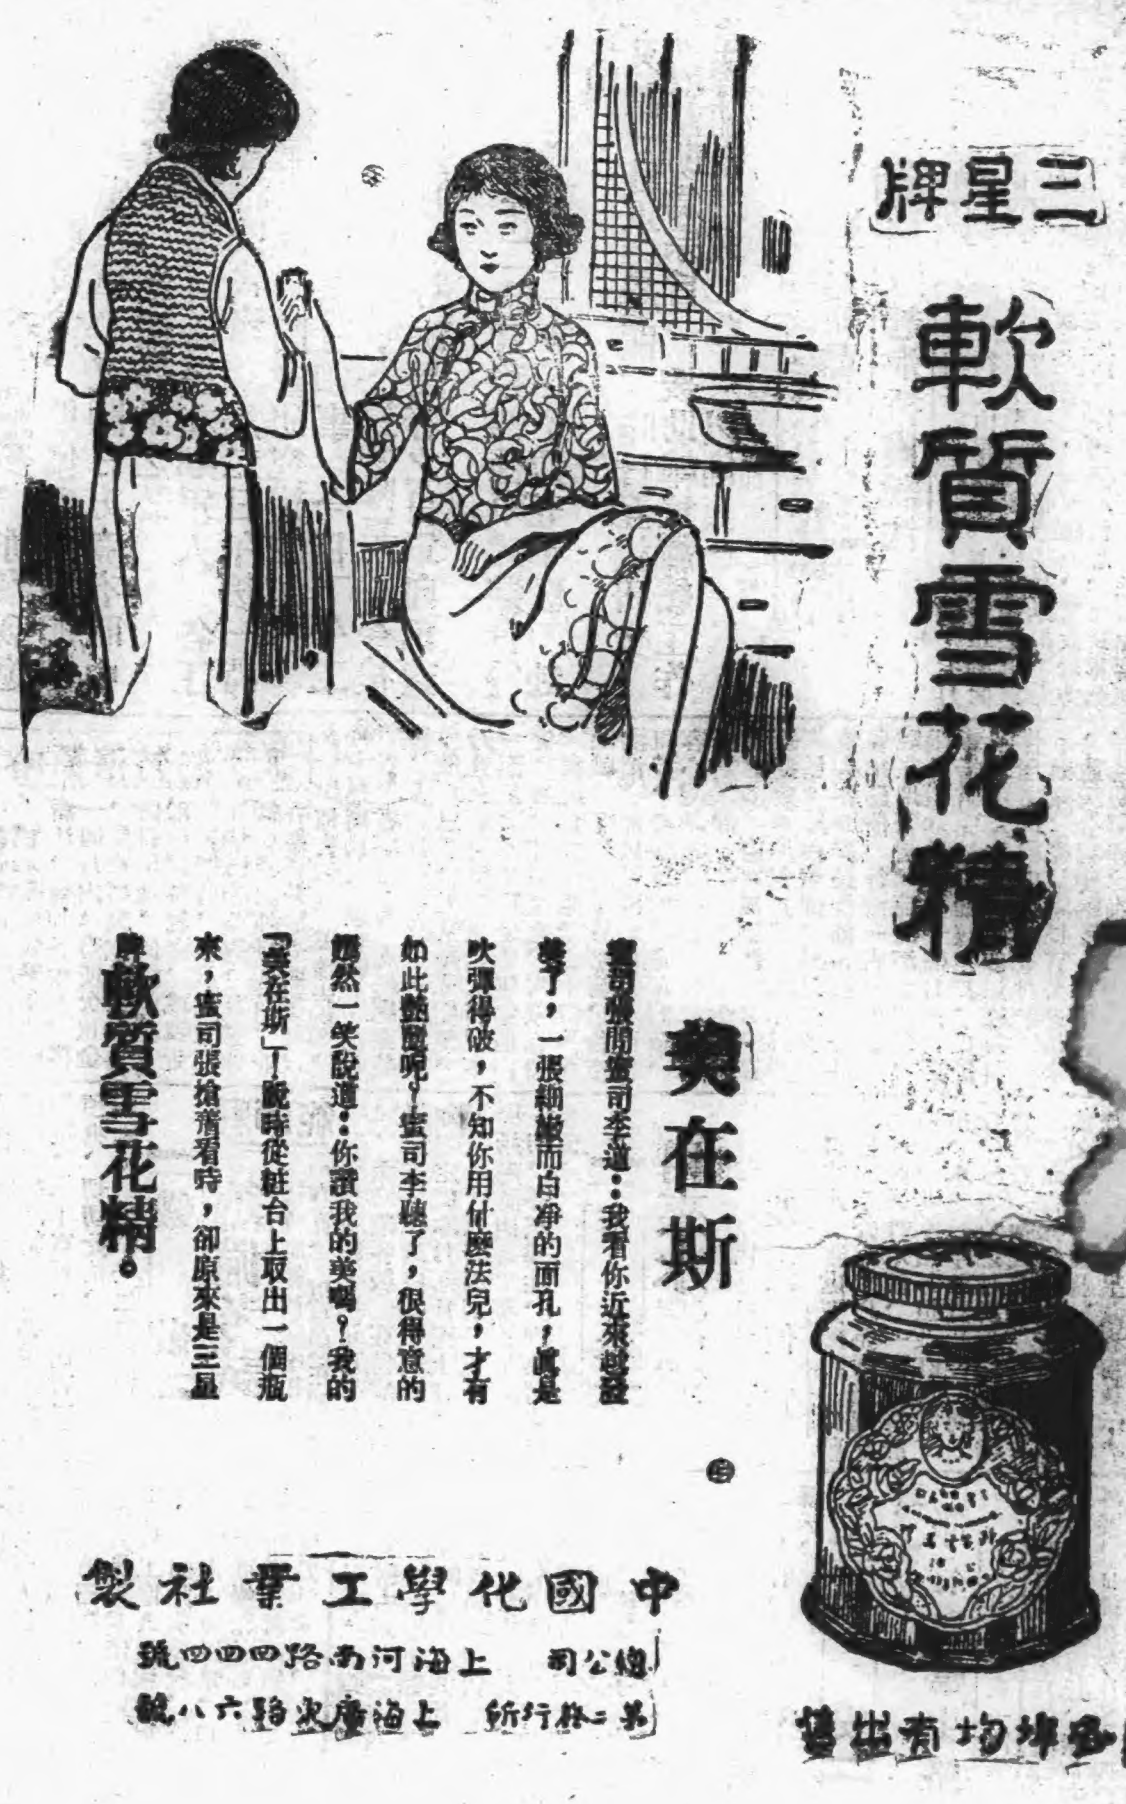 三星牌
軟質雪花精
美在斯
蜜司張問蜜司李道：我看你近來越發
美了，一張細緻而白净的面孔，眞是
吹彈得破，不知你用什麽法兒，才有
如此艷麗呢？蜜司李聽了，很得意的
嫣然一笑說道：你讚我的美嗎？我的
「美在斯」！說時從粧台上取出一個瓶
來，蜜司張搶着看時，卻原來是三星
牌軟質雪花精。
中國化學工業社製
總公司　上海河南路四四四號
第二發行所　上海廣東路六八號
各埠均有出售